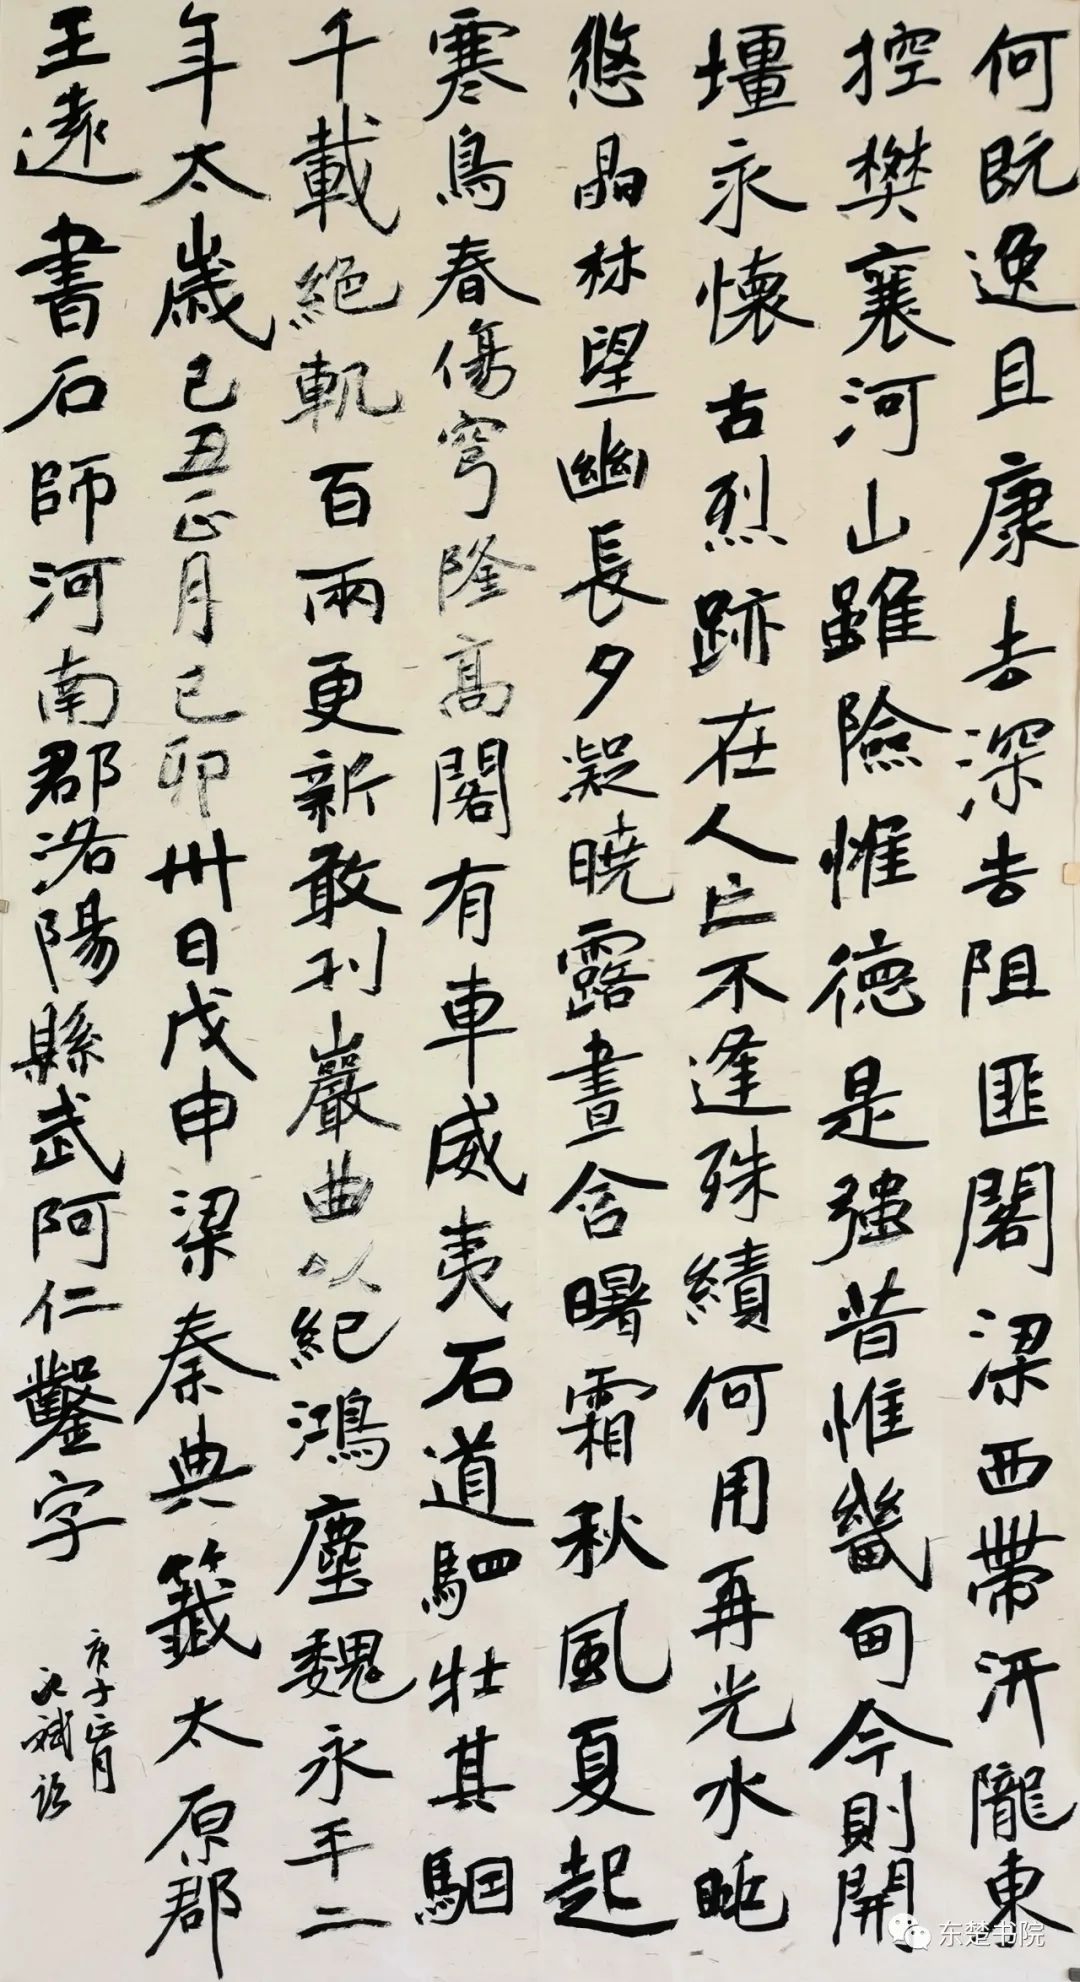 何既逸且康去深去阻匪閣梁西帶汧隴東
控樊襄河山雖險惟德是强昔惟畿甸今則開
壃永懷古烈跡在人亡不逢殊績何用再光水眺
悠晶林望幽長夕凝曉露晝含曙霜秋風夏起
寒鳥春傷穹隆高閣有車威夷石道駟牡其駰
千載絕軌百兩更新敢刊巖曲以紀鴻塵魏永平二
年太歲己丑正月己卯卅日戊申梁秦典籤太原郡
王遠書石師河南郡洛陽縣武阿仁鑿字
庚子正月
斌
东楚书院